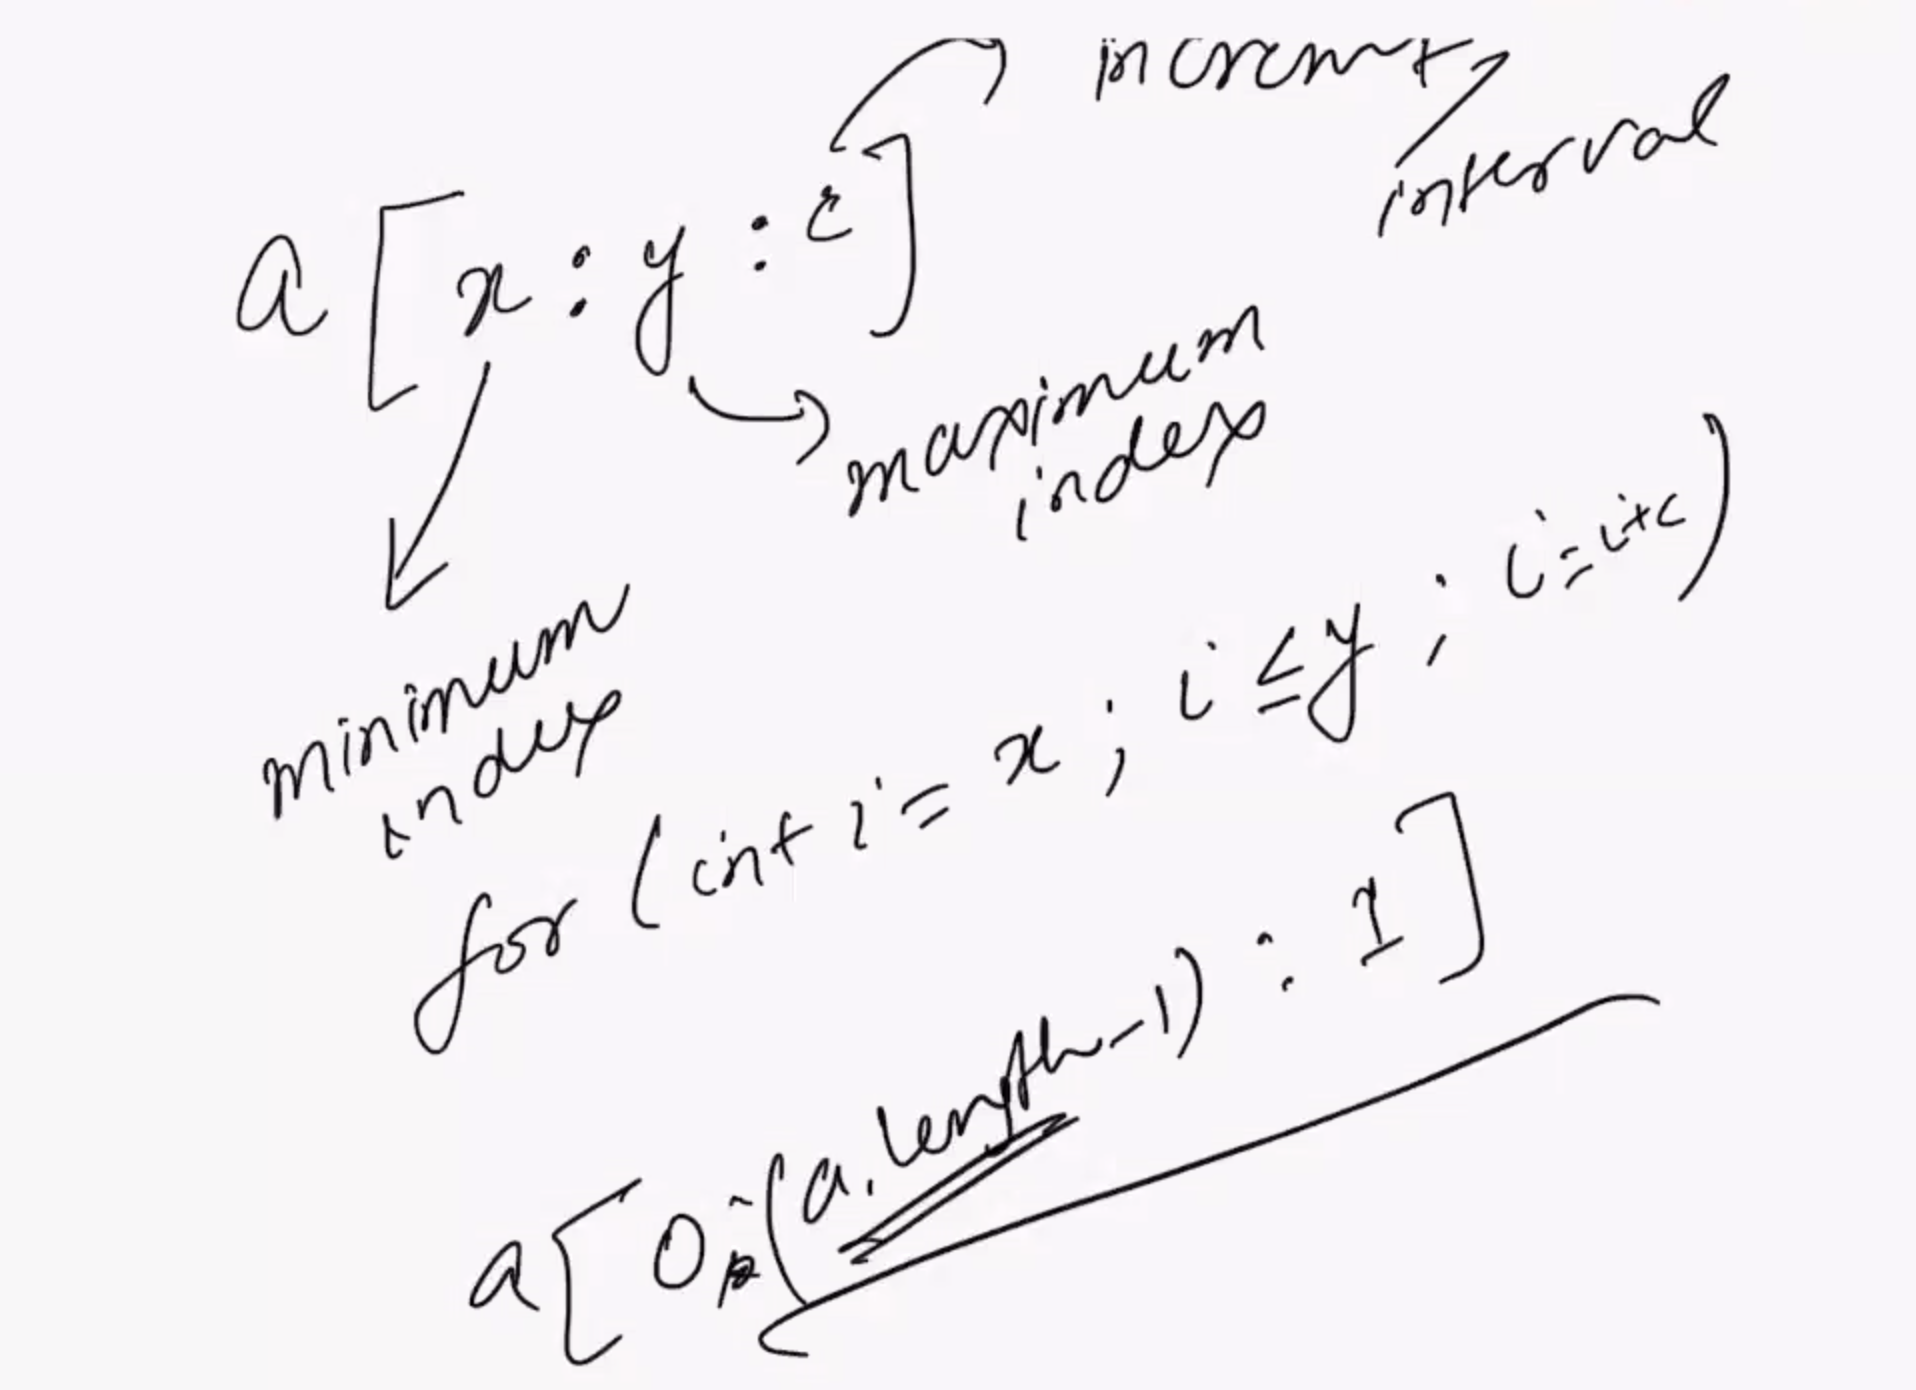 increment
interval
a[x:y:c]
maximum
index
minimum
index
for (int i = x ; i ≤ y ; i = i+c)
a[0:(a.length-1):1]